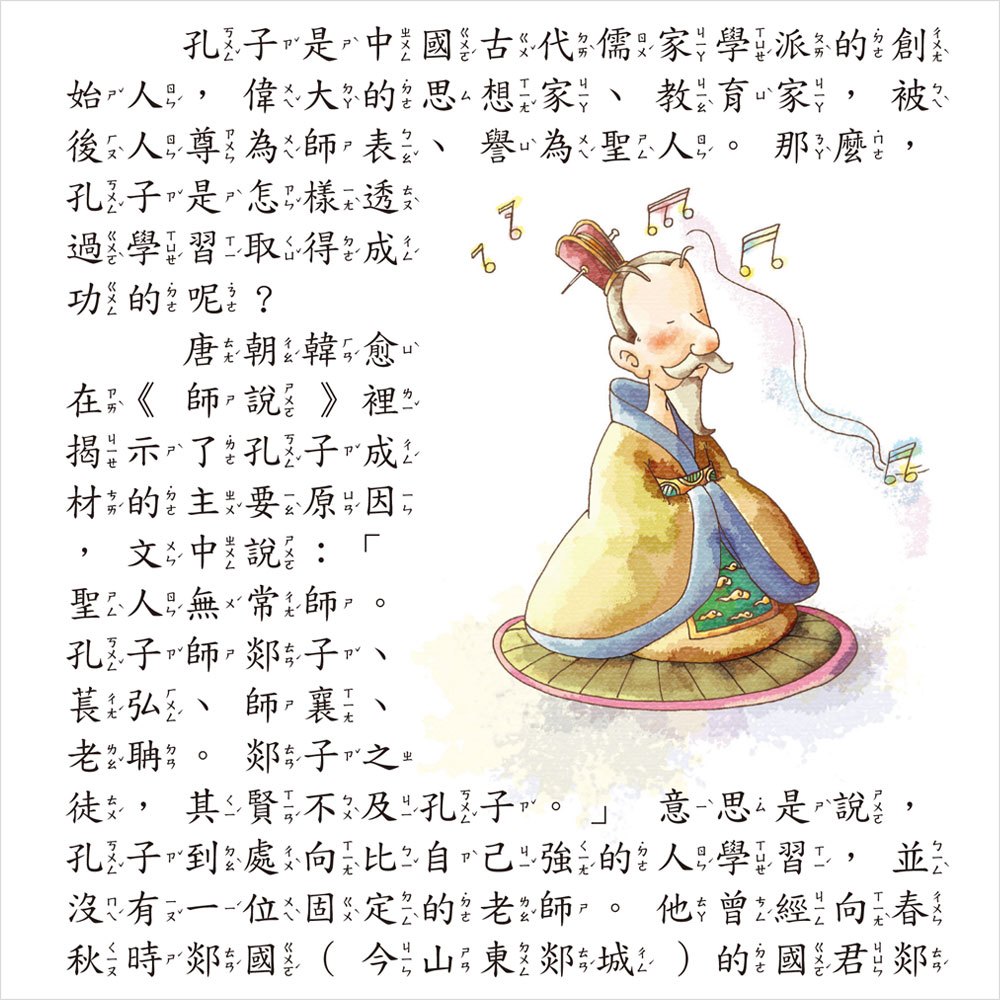 孔子是中國古代儒家學派的創
始人，偉大的思想家、教育家，被
後人尊為師表、譽為聖人。那麼，
孔子是怎樣透
過學習取得成
功的呢？
唐朝韓愈
在《師說》裡
揭示了孔子成
材的主要原因
，文中說：「
聖人無常師。
孔子師郯子、
萇弘、師襄、
老聃。郯子之
徒，其賢不及孔子。」意思是說，
孔子到處向比自己強的人學習，並
沒有一位固定的老師。他曾經向春
秋時郯國（今山東郯城）的國君郯